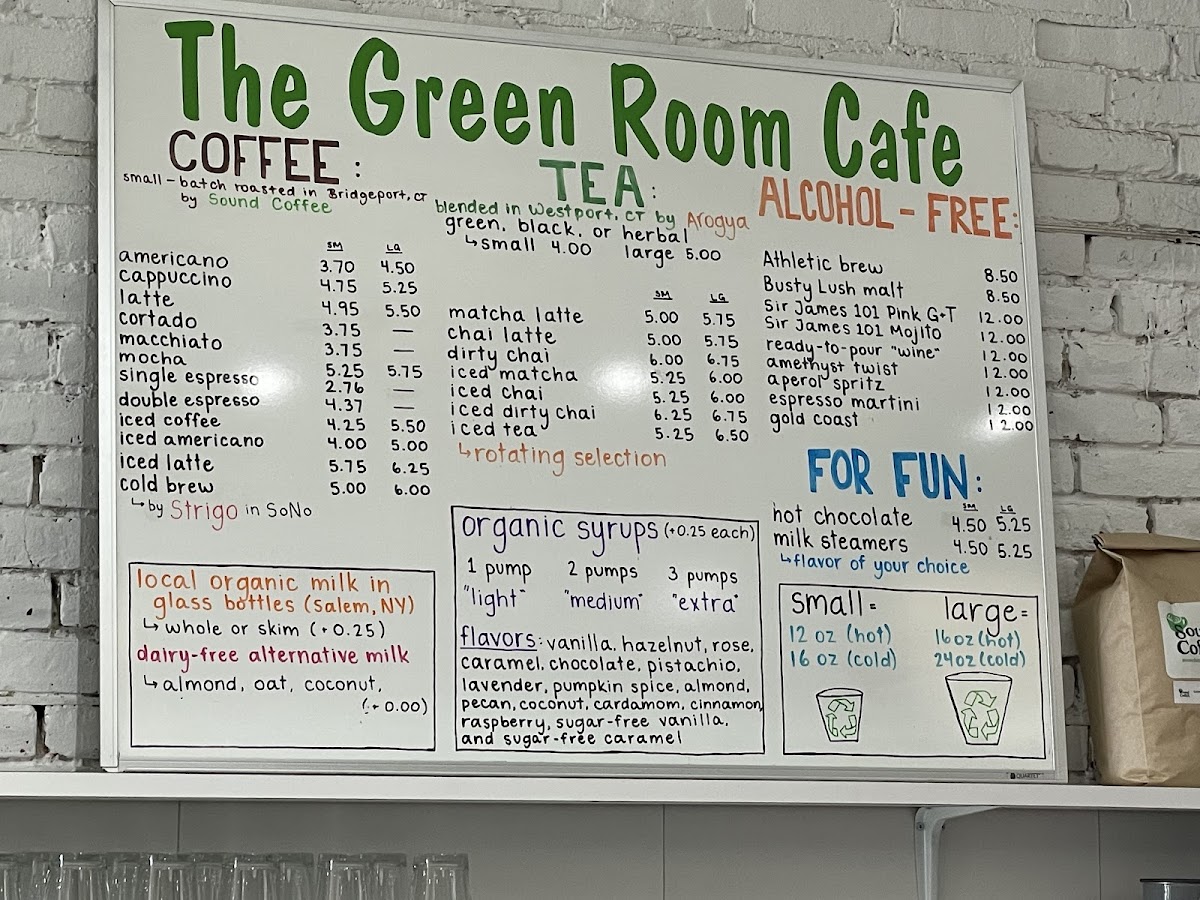 The Green Room Cafe
COFFEE:
small-batch roasted in Bridgeport, CT
by Sound Coffee
SM LG
americano 3.70 4.50
cappuccino 4.75 5.25
latte 4.95 5.50
cortado 3.75 —
macchiato 3.75 —
mocha 5.25 5.75
single espresso 2.76 —
double espresso 4.37 —
iced coffee 4.25 5.50
iced americano 4.00 5.00
iced latte 5.75 6.25
cold brew 5.00 6.00
↳by Strigo in SoNo
local organic milk in
glass bottles (salem, NY)
↳ whole or skim (+0.25)
dairy-free alternative milk
↳ almond, oat, coconut,
(+ 0.00)
TEA:
blended in Westport, CT by Arogya
green, black, or herbal
↳small 4.00 large 5.00
SM LG
matcha latte 5.00 5.75
chai latte 5.00 5.75
dirty chai 6.00 6.75
iced matcha 5.25 6.00
iced chai 5.25 6.00
iced dirty chai 6.25 6.75
iced tea 5.25 6.50
↳rotating selection
organic syrups (+0.25 each)
1 pump 2 pumps 3 pumps
"light" "medium" "extra"
flavors: vanilla, hazelnut, rose,
caramel, chocolate, pistachio,
lavender, pumpkin spice, almond,
pecan, coconut, cardamom, cinnamon,
raspberry, sugar-free vanilla,
and sugar-free caramel
ALCOHOL-FREE:
Athletic brew 8.50
Busty Lush malt 8.50
Sir James 101 Pink G+T 12.00
Sir James 101 Mojito 12.00
ready-to-pour "wine" 12.00
amethyst twist 12.00
aperol spritz 12.00
espresso martini 12.00
gold coast 12.00
FOR FUN:
SM LG
hot chocolate 4.50 5.25
milk steamers 4.50 5.25
↳flavor of your choice
small= large=
12 oz (hot) 16oz (hot)
16 oz (cold) 24oz (cold)
QUARTET